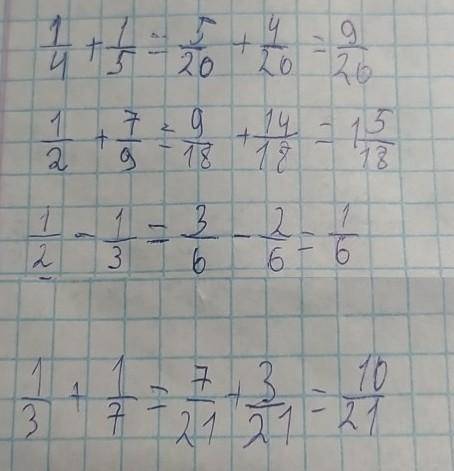 1/4 + 1/5 = 5/20 + 4/20 = 9/20
1/2 + 7/9 = 9/18 + 14/18 = 1 5/18
1/2 - 1/3 = 3/6 - 2/6 = 1/6
1/3 + 1/7 = 7/21 + 3/21 = 10/21